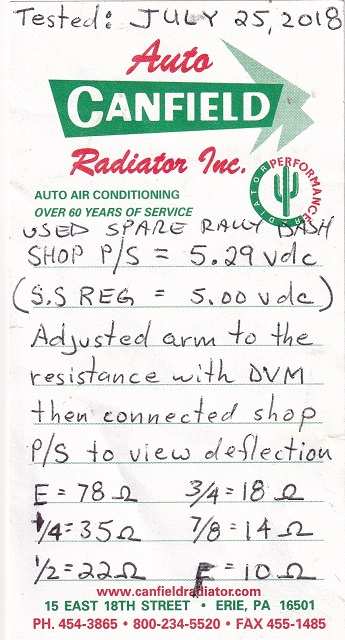 Tested: JULY 25, 2018
Auto
CANFIELD
Radiator Inc.
PERFORMANCE RADIATOR
AUTO AIR CONDITIONING
OVER 60 YEARS OF SERVICE
USED SPARE RALLY DASH
SHOP P/S = 5.29 vdc
(S.S REG = 5.00 vdc)
Adjusted arm to the
resistance with DVM
then connected shop
P/S to view deflection
E = 78 Ω 3/4 = 18 Ω
1/4 = 35 Ω 7/8 = 14 Ω
1/2 = 22 Ω F = 10 Ω
www.canfieldradiator.com
15 EAST 18TH STREET • ERIE, PA 16501
PH. 454-3865 • 800-234-5520 • FAX 455-1485